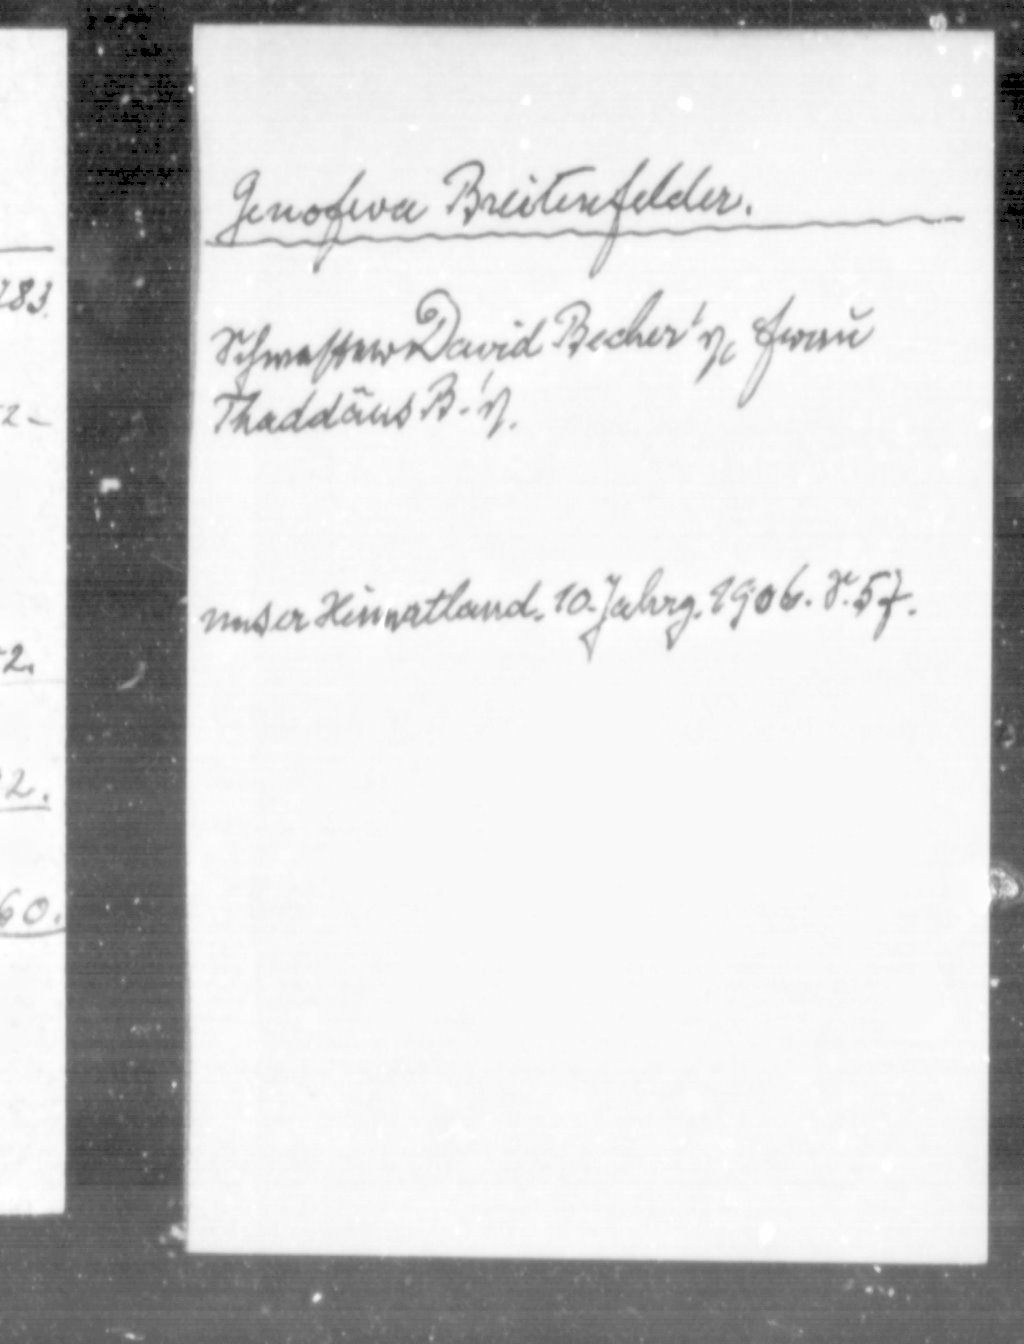 Genofeva Breitenfelder.
Schwester David Becher's, Frau
Thaddäus B.'s.
unser Heimatland. 10. Jahrg. 1906. S. 57.
283.
2.
2.
60.